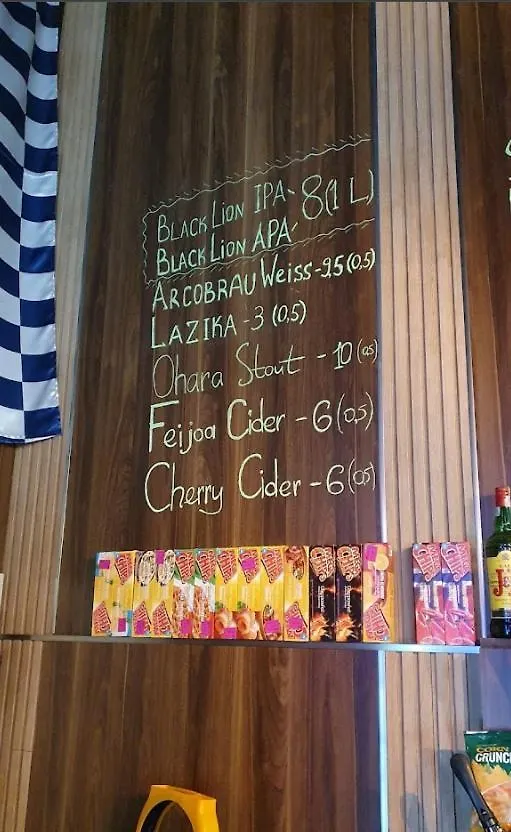 BLACK LION IPA- 8(1 L)
BLACK LION APA
ARCOBRAU Weiss-9.5(0,5)
LAZIKA-3 (0,5)
Ohara Stout - 10 (0,5)
Feijoa Cider - 6 (0,5)
Cherry Cider - 6 (0,5)
J&B
CORN
CRUNC